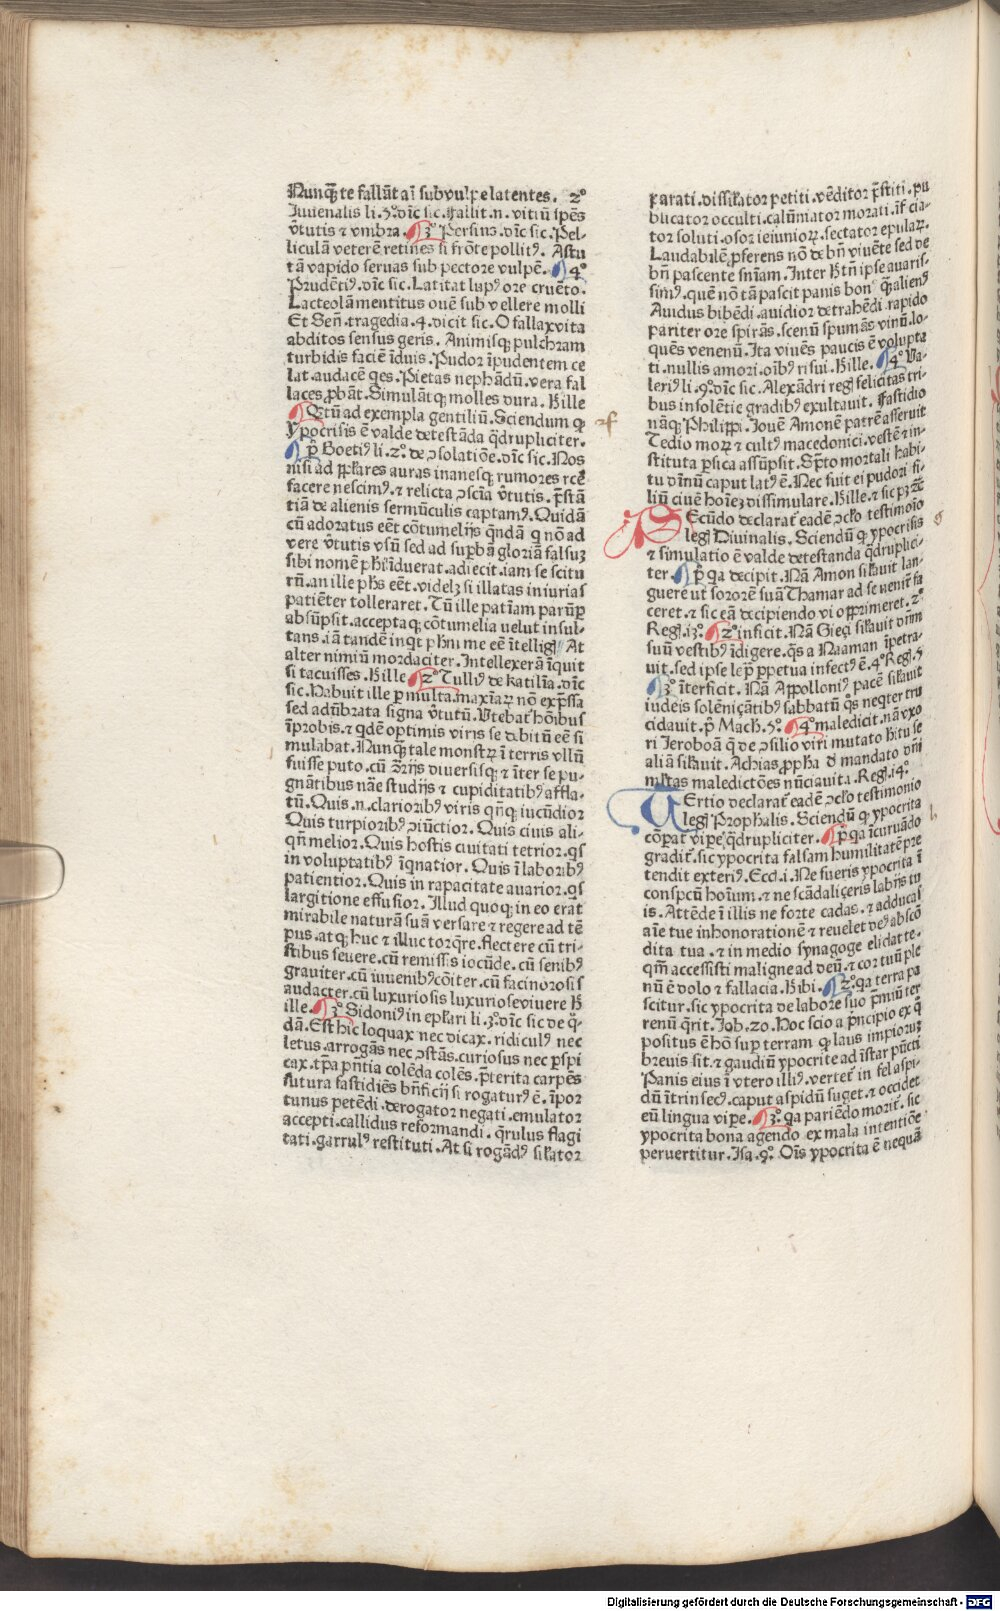 Nunq̄ te fallūt aı̄ sub vulpe latentes. 2°
Iuuenalis li. 5°. dīc sic. Fallit .n. vitiū spēs
v̄tutis ⁊ vmbra. 3° Persius. dīc sic. Pel-
liculā veterē retines si frōte pollitꝰ. Astu
tā vapido seruas sub pectore vulpē. 4°
Prudētiꝰ. dīc sic. Latitat lupꝰ ore cruēto.
Lacteolā mentitus ouē sub vellere molli
Et Señ. tragedia. 4. dicit sic. O fallax vita
abditos sensus geris. Animisq; pulchram
turbidis faciē īduis. Pudor īpudentem ce
lat. audacē q̇es. Pietas nephādū. vera fal
laces ꝓbāt. Simulātq; molles dura. Hille
Q̣rtū ad exempla gentiliū. Sciendum ꝙ
Ypocrisis ē valde detestāda q̄drupliciter.
p̄ Boetiꝰ li. 2°. de ↄsolatiōe. dīc sic. Nos
nisi ad ꝓplares auras inanesq; rumores rcē
facere nescimꝰ. ⁊ relicta ↄscīa v̄tutis. p̄stā
tiā de alienis sermūculis captamꝰ. Quidā
cū adoratus eēt cōtumelijs q̄ndā q nō ad
vere v̄tutis vsū sed ad suꝑbā gloriā falsuꝫ
sibi nomē phī īduerat. adiecit. iam se scitu
rū. an ille phs eēt. videlꝫ si illatas iniurias
patiēter tolleraret. Tū ille patīam parūꝑ
absūpsit. acceptaq; cōtumelia uelut insul-
tans. iā tandē inqt phm me eē ītelligꝭ At
alter nimiū mordaciter. Intellexerā īquit
si tacuisses. Hille 2° Tulliꝰ de Katilīa. dīc
sic. Habuit ille ꝑmulta. maxīaꝝ nō exp̄ssa
sed adūbrata signa v̄tutū. Vtebat̄ hōibus
īprobis. ⁊ q̇dē optimis viris se debitū eē si
mulabat. Nunq̄ tale monstrꝝ ī terris vllū
fuisse puto. cū ꝯrijs diuersisq; ⁊ īter se pu-
gnātibus nāe studijs ⁊ cupiditatibꝰ affla-
tū. Quis .n. clarioribꝰ viris qn̄q; iucūdior
Quis turpioribꝰ ↄiūctior. Quis ciuis ali-
qn̄ melior. Quis hostis ciuitati tetrior. q̇s
in voluptatibꝰ īqnatior. Quis ī laboribꝰ
patientior. Quis in rapacitate auarior. q̇s
largitione effusior. Illud quoq; in eo erat
mirabile naturā suā versare ⁊ regere ad tē
pus. atq; huc ⁊ illuc torq̄re. flectere cū tri-
stibus seuere. cū remissis iocūde. cū senibꝰ
grauiter. cū iuuenibꝰ cōiter. cū facinorosis
audacter. cū luxuriosis luxuriose viuere H
ille. 3° Sidoniꝰ in eplari li. 3°. dīc sic de q̇-
dā. Est hic loquax nec dicax. ridiculꝰ nec
letus. arrogās nec ↄstās. curiosus nec ꝑspi
cax. tꝑa pn̄tia colēda colēs. p̄terita carpēs
futura fastidiēs bn̄ficij si rogaturꝰ ē. īpor
tunus petēdi. derogator negati. emulator
accepti. callidus reformandi. q̄rulus flagi
tati. garrulꝰ restituti. At si rogādꝰ silator
parati. dissilator petiti. vēditor p̄stiti. pu
blicator occulti. calūniator morati. īf cia-
tor soluti. osor ieiunioꝝ. sectator epulaꝝ.
Laudabilē p̄ferens nō de bn̄ viuēte sed de
bn̄ pascente sniam. Inter hec tn̄ ipse auaris-
simꝰ. quē nō tā pascit panis bonꝰ q̄ alienꝰ
Auidus bibēdi. auidior detrahēdi. rapido
pariter ore spirās. scenū spumās vinū. lo-
quēs venenū. Ita viuēs paucis ē volupta
ti. nullis amori. oībꝰ risui. Hille. 4° Va-
leriꝰ li. 9°. dīc sic. Alexādri regꝭ felicitas tri-
bus insolētie gradibꝰ exultauit. Fastidio
nāq; Philippi. Iouē Amonē patrē asseruit
Tedio moꝝ ⁊ cultꝰ macedonici. vestē ⁊ in-
stituta ꝑsica assūpsit. Sp̄to mortali habi-
tu dīnū caput latꝰ ē. Nec fuit ei pudori fi-
liū ciuē hoīeꝫ dissimulare. Hille. ⁊ sic pꝫ ꝛc̄
SEcūdo declarat̄ eadē ↄclo testimoīo
legꝭ Diuinalis. Sciendū ꝙ ypocrisis
⁊ simulatio ē valde detestanda q̄druplici-
ter. p̄ qa decipit. Nā Amon silauit lan-
guere ut sororē suā Thamar ad se uenire fa
ceret. ⁊ sic eā decipiendo vi opprimeret. 2°
Regꝭ. i3°. 2° inficit. Nā Gieçi silauit dn̄m
suū vestibꝰ īdigere. q̄s a Naaman īpetra-
uit. sed ipse lepra ꝑpetua infectꝰ ē. 4° Regꝭ. 5
3° īterficit. Nā Appolloniꝰ pacē silauit
iudeis solēniçātibꝰ sabbatū q̊s neqter tru
cidauit. p̄ Mach. 5°. 4° maledicit. nā vxo
ri Ieroboā q̄ de ↄsilio viri mutato hītu se
aliā silauit. Achias ꝓpha d̄ mandato dn̄i
mltas maledictōes nūciauita. Regꝭ. i4°.
TErtio declarat̄ eadē ↄclo testimonio
legꝭ Prophalis. Sciendū ꝙ ypocrita
cōꝑat viꝑe q̄drupliciter. p̄ qa īcuruādo
gradit̄. sic ypocrita falsam humilitatē pre
tendit exteriꝰ. Eccl. i. Ne fueris ypocrita ī
conspcū hoīum. ⁊ ne scādaliçeris labijs tu
is. Attēde ī illis ne forte cadas. ⁊ adducas
aīe tue inhonorationē ⁊ reuelet deꝰ abscō
dita tua. ⁊ in medio synagoge elidat te.
qm̄ accessisti maligne ad deū. ⁊ cor tuū ple
nū ē dolo ⁊ fallacia. Hibi. 2°. qa terra pa
scitur. sic ypocrita de labore suo p̄miū ter
renū q̄rit. Iob. 20. Hoc scio a p̄ncipio ex q̊
positus ē hō suꝑ terram ꝙ laus impioruꝫ
breuis sit. ⁊ gaudiū ypocrite ad īstar pūcti
Panis eius ī vtero illiꝰ. vertet̄ in fel aspi-
dū ītrinsecꝰ. caput aspidū suget. ⁊ occidet
eū lingua viꝑe. 3°. qa pariēdo morit̄. sic
ypocrita bona agendo ex mala intentiōe
peruertitur. Isa. 9°. Oīs ypocrita ē nequā
Digitalisierung gefördert durch die Deutsche Forschungsgemeinschaft - DFG